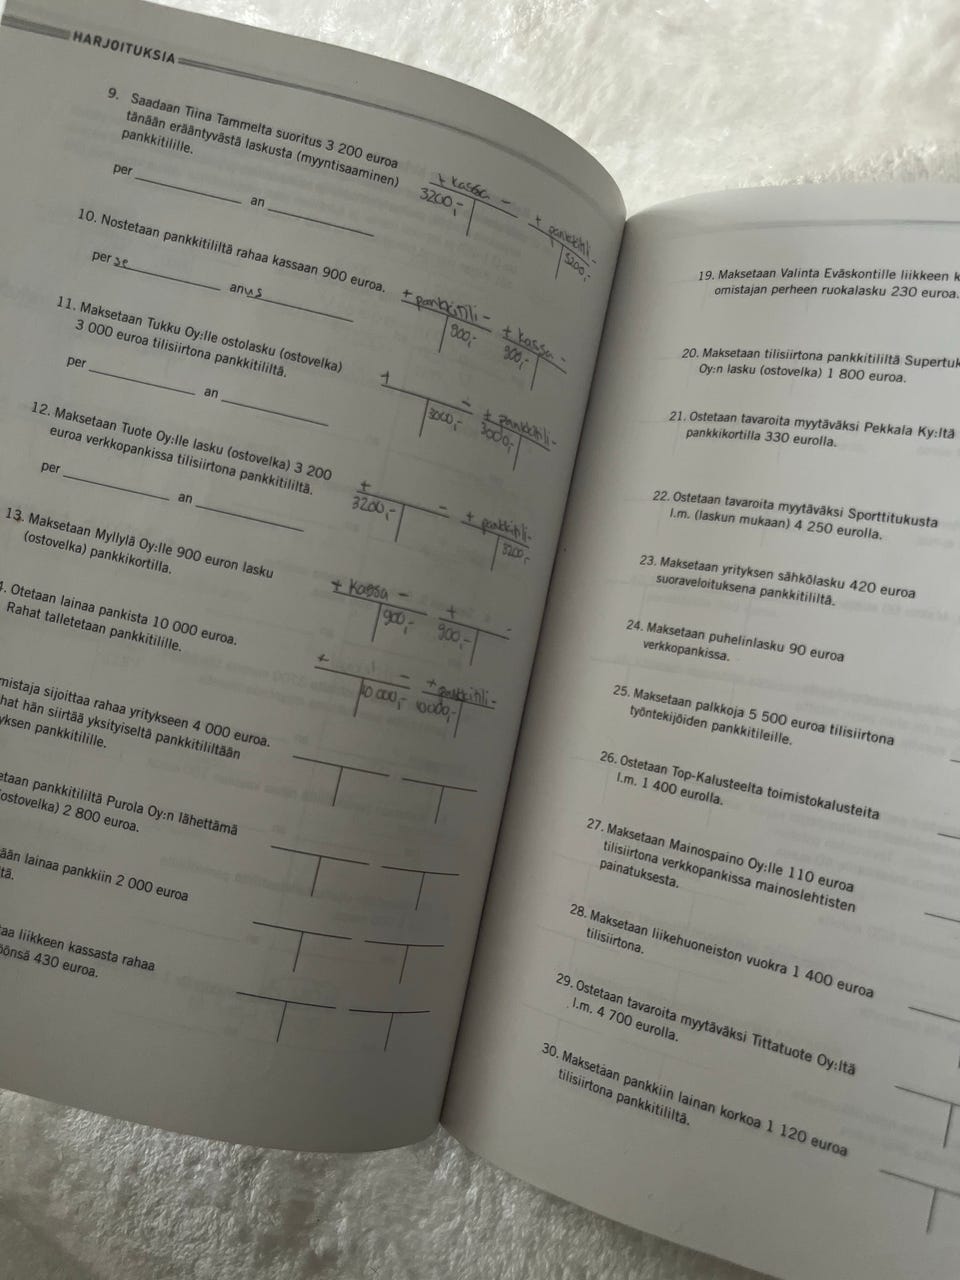 HARJOITUKSIA
9. Saadaan Tiina Tammelta suoritus 3 200 euroa
tänään erääntyvästä laskusta (myyntisaaminen)
pankkitilille.
+ kassa -
3200,-
+ pankkitili -
3200,-
per
an
10. Nostetaan pankkitililtä rahaa kassaan 900 euroa.
per se
anus
+ pankkitili -
900,-
+ kassa -
900,-
11. Maksetaan Tukku Oy:lle ostolasku (ostovelka)
3 000 euroa tilisiirtona pankkitililtä.
per
an
+ -
3000,-
+ pankkitili -
3000,-
12. Maksetaan Tuote Oy:lle lasku (ostovelka) 3 200
euroa verkkopankissa tilisiirtona pankkitililtä.
per
an
+ -
3200,-
+ pankkitili -
3200,-
13. Maksetaan Myllylä Oy:lle 900 euron lasku
(ostovelka) pankkikortilla.
+ kassa -
900,-
+ -
900,-
4. Otetaan lainaa pankista 10 000 euroa.
Rahat talletetaan pankkitilille.
+ -
10 000,-
+ pankkitili -
10000,-
mistaja sijoittaa rahaa yritykseen 4 000 euroa.
hat hän siirtää yksityiseltä pankkitililtään
yksen pankkitilille.
etaan pankkitililtä Purola Oy:n lähettämä
(ostovelka) 2 800 euroa.
ään lainaa pankkiin 2 000 euroa
ltä.
taa liikkeen kassasta rahaa
öönsä 430 euroa.
19. Maksetaan Valinta Eväskontille liikkeen k
omistajan perheen ruokalasku 230 euroa.
20. Maksetaan tilisiirtona pankkitililtä Supertuk
Oy:n lasku (ostovelka) 1 800 euroa.
21. Ostetaan tavaroita myytäväksi Pekkala Ky:ltä
pankkikortilla 330 eurolla.
22. Ostetaan tavaroita myytäväksi Sporttitukusta
l.m. (laskun mukaan) 4 250 eurolla.
23. Maksetaan yrityksen sähkölasku 420 euroa
suoraveloituksena pankkitililtä.
24. Maksetaan puhelinlasku 90 euroa
verkkopankissa.
25. Maksetaan palkkoja 5 500 euroa tilisiirtona
työntekijöiden pankkitileille.
26. Ostetaan Top-Kalusteelta toimistokalusteita
l.m. 1 400 eurolla.
27. Maksetaan Mainospaino Oy:lle 110 euroa
tilisiirtona verkkopankissa mainoslehtisten
painatuksesta.
28. Maksetaan liikehuoneiston vuokra 1 400 euroa
tilisiirtona.
29. Ostetaan tavaroita myytäväksi Tittatuote Oy:ltä
l.m. 4 700 eurolla.
30. Maksetaan pankkiin lainan korkoa 1 120 euroa
tilisiirtona pankkitililtä.